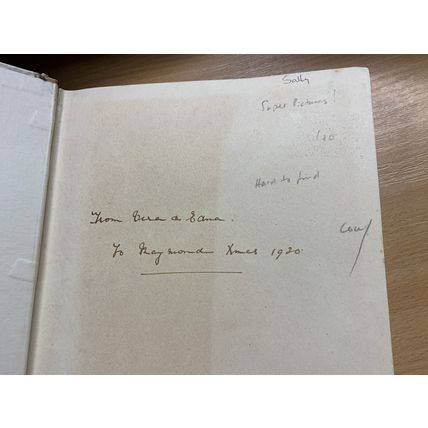 Sally
Super Pictures!
Hard to find
From Vera & Edna.
To Raymond Xmas 1920